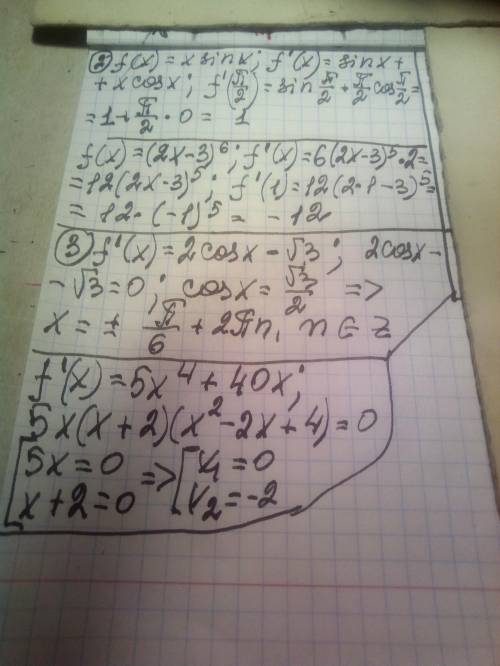 ② f(x) = x sin x; f'(x) = sin x +
+ x cos x; f'(π/2) = sin π/2 + π/2 cos π/2 =
= 1 + π/2 · 0 = 1
f(x) = (2x-3)⁶; f'(x) = 6(2x-3)⁵·2 =
= 12(2x-3)⁵; f'(1) = 12(2·1-3)⁵ =
= 12·(-1)⁵ = -12
③ f'(x) = 2cos x - √3; 2cos x -
- √3 = 0; cos x = √3/2 =>
x = ± π/6 + 2πn, n ∈ Z
f'(x) = 5x⁴ + 40x;
5x(x+2)(x²-2x+4) = 0
[5x = 0 => [x₁ = 0
x+2 = 0 x₂ = -2